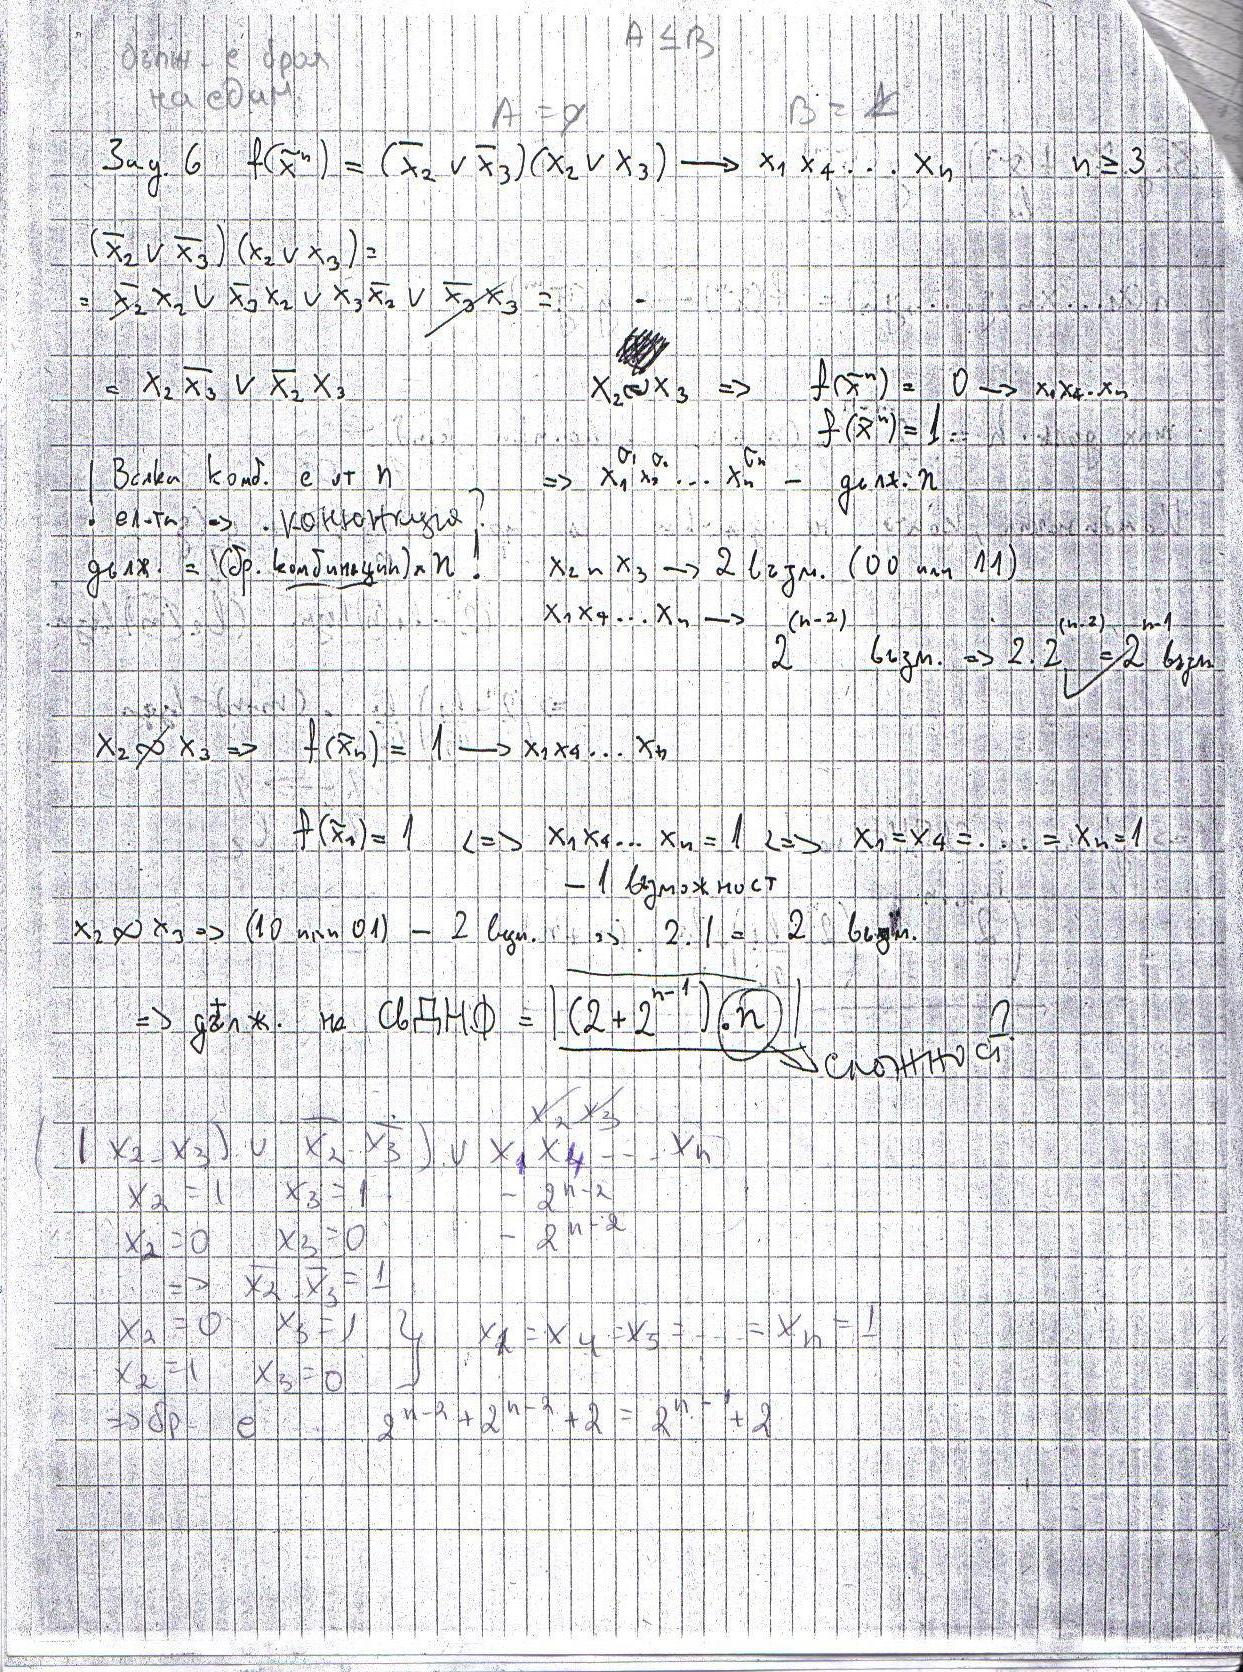 A ≤ B
дълж - е броя
на един.
A = 0 B = 1
Зад. 6 f(x̃ⁿ) = (x̄₂ ∨ x̄₃)(x₂ ∨ x₃) → x₁ x₄ ... xₙ n ≥ 3
(x̄₂ ∨ x̄₃)(x₂ ∨ x₃) =
= x̄₂ x₂ ∨ x̄₃ x₂ ∨ x₃ x̄₂ ∨ x̄₃ x₃ =
= x₂ x̄₃ ∨ x̄₂ x₃ x₂ ∾ x₃ => f(x̃ⁿ) = 0 → x₁x₄..xₙ
f(x̃ⁿ) = 1
Всяка комб. е от n => x₁^σ₁ x₂^σ₂ ... xₙ^σₙ - дълж. n
ел-та => конюнкция?
дълж. = (бр. комбинации) * n! x₂ и x₃ → 2 възм. (00 или 11)
x₁x₄...xₙ → 2^(n-2) възм. => 2.2^(n-2) = 2^(n-1) възм
x₂ ≁ x₃ => f(x̃ₙ) = 1 → x₁x₄...xₙ
f(x̃₁) = 1 <=> x₁x₄...xₙ = 1 <=> x₁ = x₄ = ... = xₙ = 1
- 1 възможност
x₂ ≁ x₃ => (10 или 01) - 2 възм. => 2.1 = 2 възм.
=> дълж. на СвДНФ = |(2 + 2^(n-1)).n| → сложност?
x₂ x₃
(x₂ . x₃) ∨ x̄₂ . x̄₃) ∨ x₁ x₄ ... xₙ
x₂ = 1 x₃ = 1 - 2^(n-2)
x₂ = 0 x₃ = 0 - 2^(n-2)
=> x̄₂ . x̄₃ = 1
x₂ = 0 x₃ = 1 } x₁ = x₄ = x₅ = ... = xₙ = 1
x₂ = 1 x₃ = 0
=> бр. е 2^(n-2) + 2^(n-2) + 2 = 2^(n-1) + 2